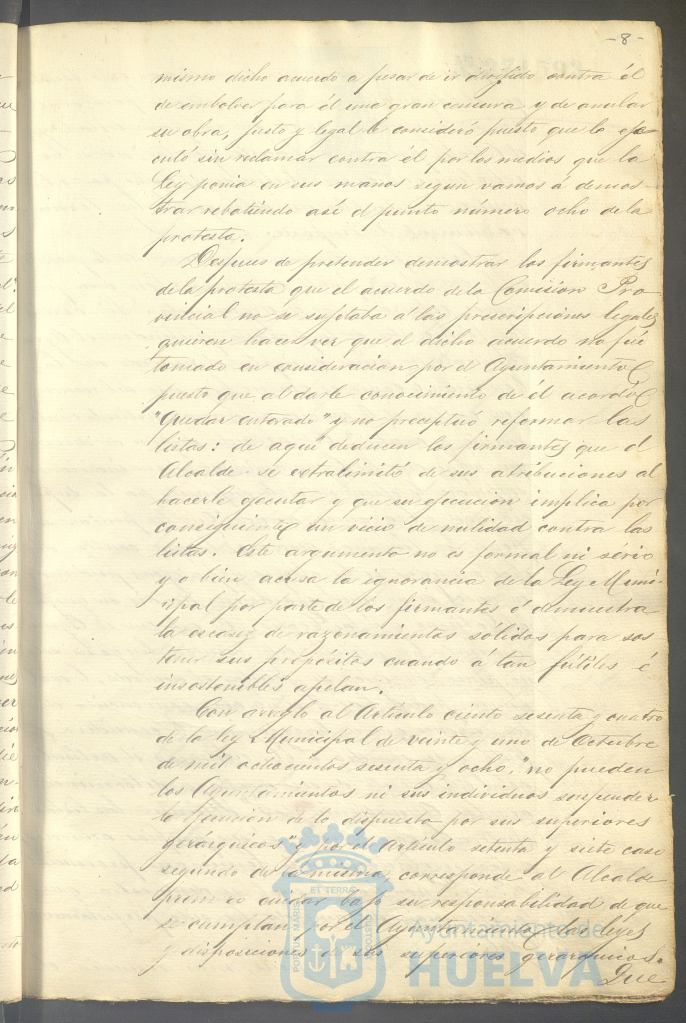 -8-
mismo dicho acuerdo a pesar de ir dirigido contra él
de embolver para él una gran censura y de anular
su obra, justo y legal le consideró puesto que lo eje-
cutó sin reclamar contra él por los medios que la
Ley ponia en sus manos segun vamos á demos-
trar rebatiendo así el punto número ocho de la
protesta.
Despues de pretender demostrar los firmantes
de la protesta que el acuerdo de la Comision Pro-
vincial no se sujetaba á las prescripciones legales
quieren hacer ver que el dicho acuerdo no fué
tomado en consideracion por el Ayuntamiento
puesto que al darle conocimiento de él acordó
"Quedar enterado" y no preceptuó reformar las
listas: de aqui deducen los firmantes que el
Alcalde se extralimitó de sus atribuciones al
hacerle ejecutar y que su ejecucion implica por
consiguiente un vicio de nulidad contra las
listas. Este argumento no es formal ni sério
y o bien acusa la ignorancia de la Ley Muni-
cipal por parte de los firmantes ó demuestra
la escasez de razonamientos sólidos para sos
tener sus propósitos cuando á tan fútiles é
insostenibles apelan.
Con arreglo al Artículo ciento sesenta y cuatro
de la ley Municipal de veinte y uno de Octubre
de mil ochocientos sesenta y ocho, "no pueden
los Ayuntamientos ni sus individuos suspender
la ejecucion de lo dispuesto por sus superiores
gerárquicos" y por el Artículo setenta y siete caso
segundo de la misma, corresponde al Alcalde
cuidar bajo su responsabilidad de que
se cumplan por el Ayuntamiento las leyes
y disposiciones de sus superiores gerarquicos.
Que
Ayuntamiento de
HUELVA
PORTUS MARIS
ET TERRÆ
CUSTODIA